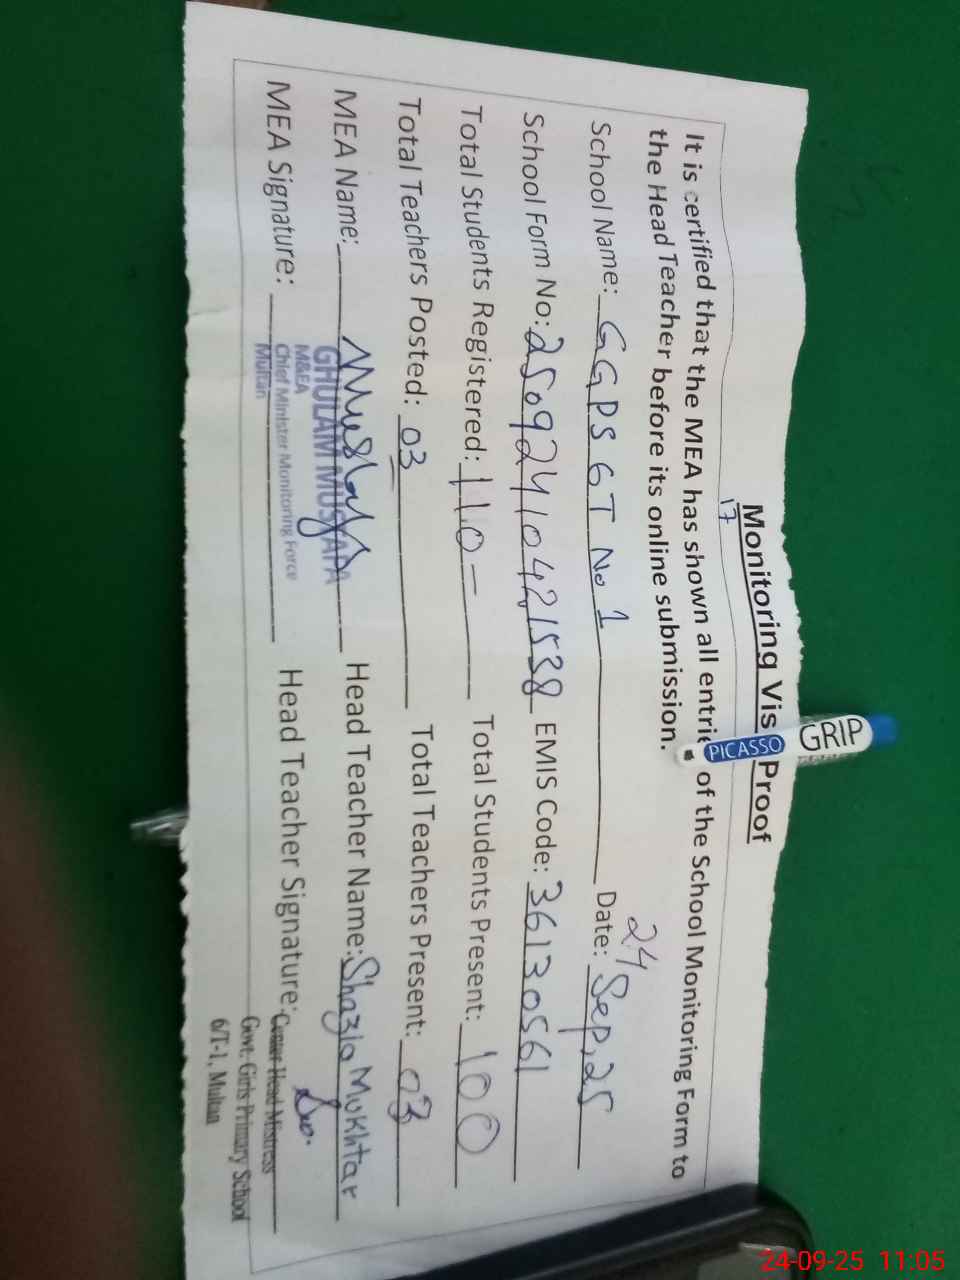 Monitoring Vis Proof
17
It is certified that the MEA has shown all entrie of the School Monitoring Form to
the Head Teacher before its online submission.
School Name: GGPS 6T No 1 Date: 24 Sep, 25
School Form No: 250924104421538 EMIS Code: 36130561
Total Students Registered: 110 Total Students Present: 100
Total Teachers Posted: 03 Total Teachers Present: 03
MEA Name: Head Teacher Name: Shazia Mukhtar
GHULAM MUSTAFA
M&EA
Chief Minister Monitoring Force
Multan
MEA Signature: Head Teacher Signature:
Center Head Mistress
Govt. Girls Primary School
6/T-1, Multan
PICASSO GRIP
24-09-25 11:05